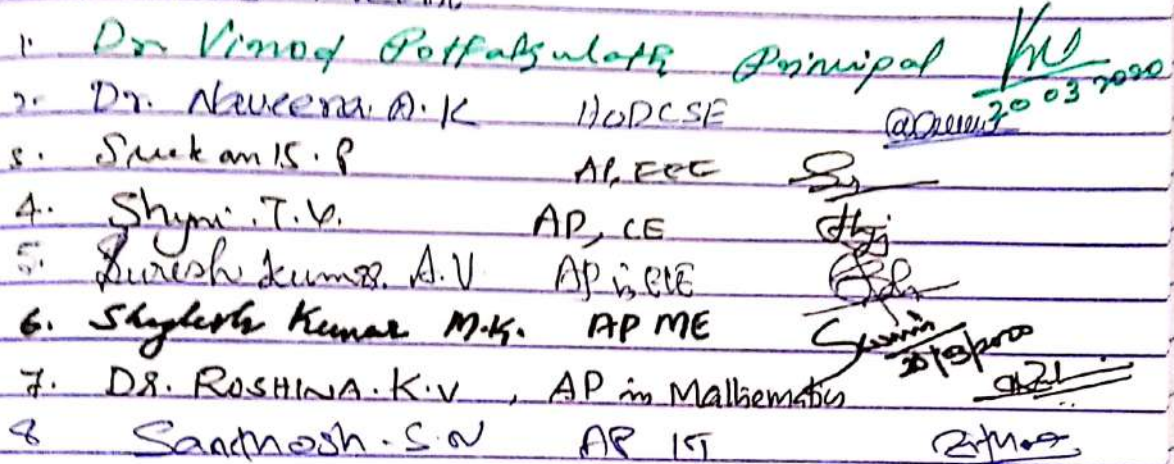 1. Dr Vinod Pottakulath Principal
20 03 2020
2. Dr. Naveena A.K HoDCSE
3. P AP, ECE
4. Shyni.T.V. AP, CE
5. Suresh Kumar. A.V AP in ECE
6. Shylesh Kumar M.K. AP ME
20/3/2020
7. DR. ROSHINA.K.V , AP in Mathematics
8 Santhosh.S.N AP IT